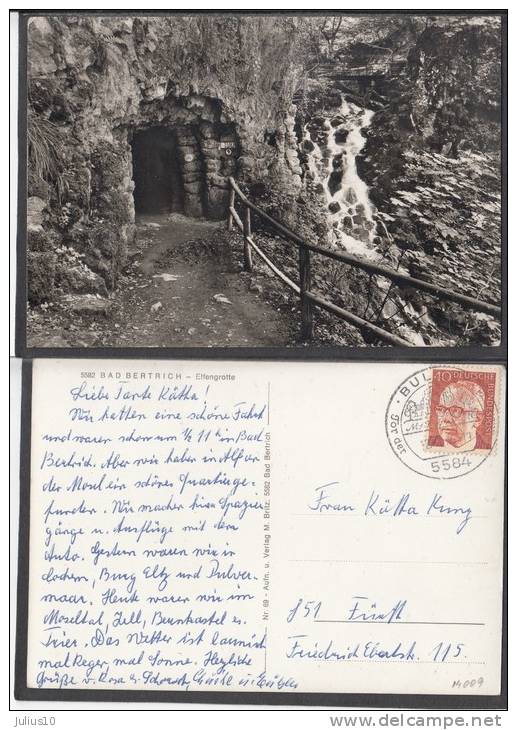 5582 BAD BERTRICH – Elfengrotte
Liebe Tante Kätha!
Wir hatten eine schöne Fahrt
und waren schon um ½ 11 h in Bad
Bertrich. Aber wir haben in Alf an
der Mosel ein schönes Quartier ge-
funden. Wir machen hier Spazier
gänge u. Ausflüge mit dem
Auto. Gestern waren wir in
Cochem, Burg Eltz und Pulver
maar. Heute waren wir im
Moseltal, Zell, Bernkastel u.
Trier. Das Wetter ist launisch
mal Regen, mal Sonne. Herzliche
Grüße v. Rosa u.
Nr. 69 - Aufn. u. Verlag M. Britz, 5582 Bad Bertrich
40 DEUTSCHE BUNDESPOST
5584
Frau Kätha Kunz
851 Fürth
Friedrich Ebertstr. 115.
M009
julius10